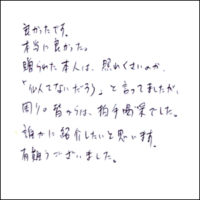 良かったです。
本当に良かった。
贈られた本人は、照れくさいのか、
「似てないだろう」と言ってましたが、
周りの皆からは、拍手喝采でした。
誰かに紹介したいと思います。
有難うございました。